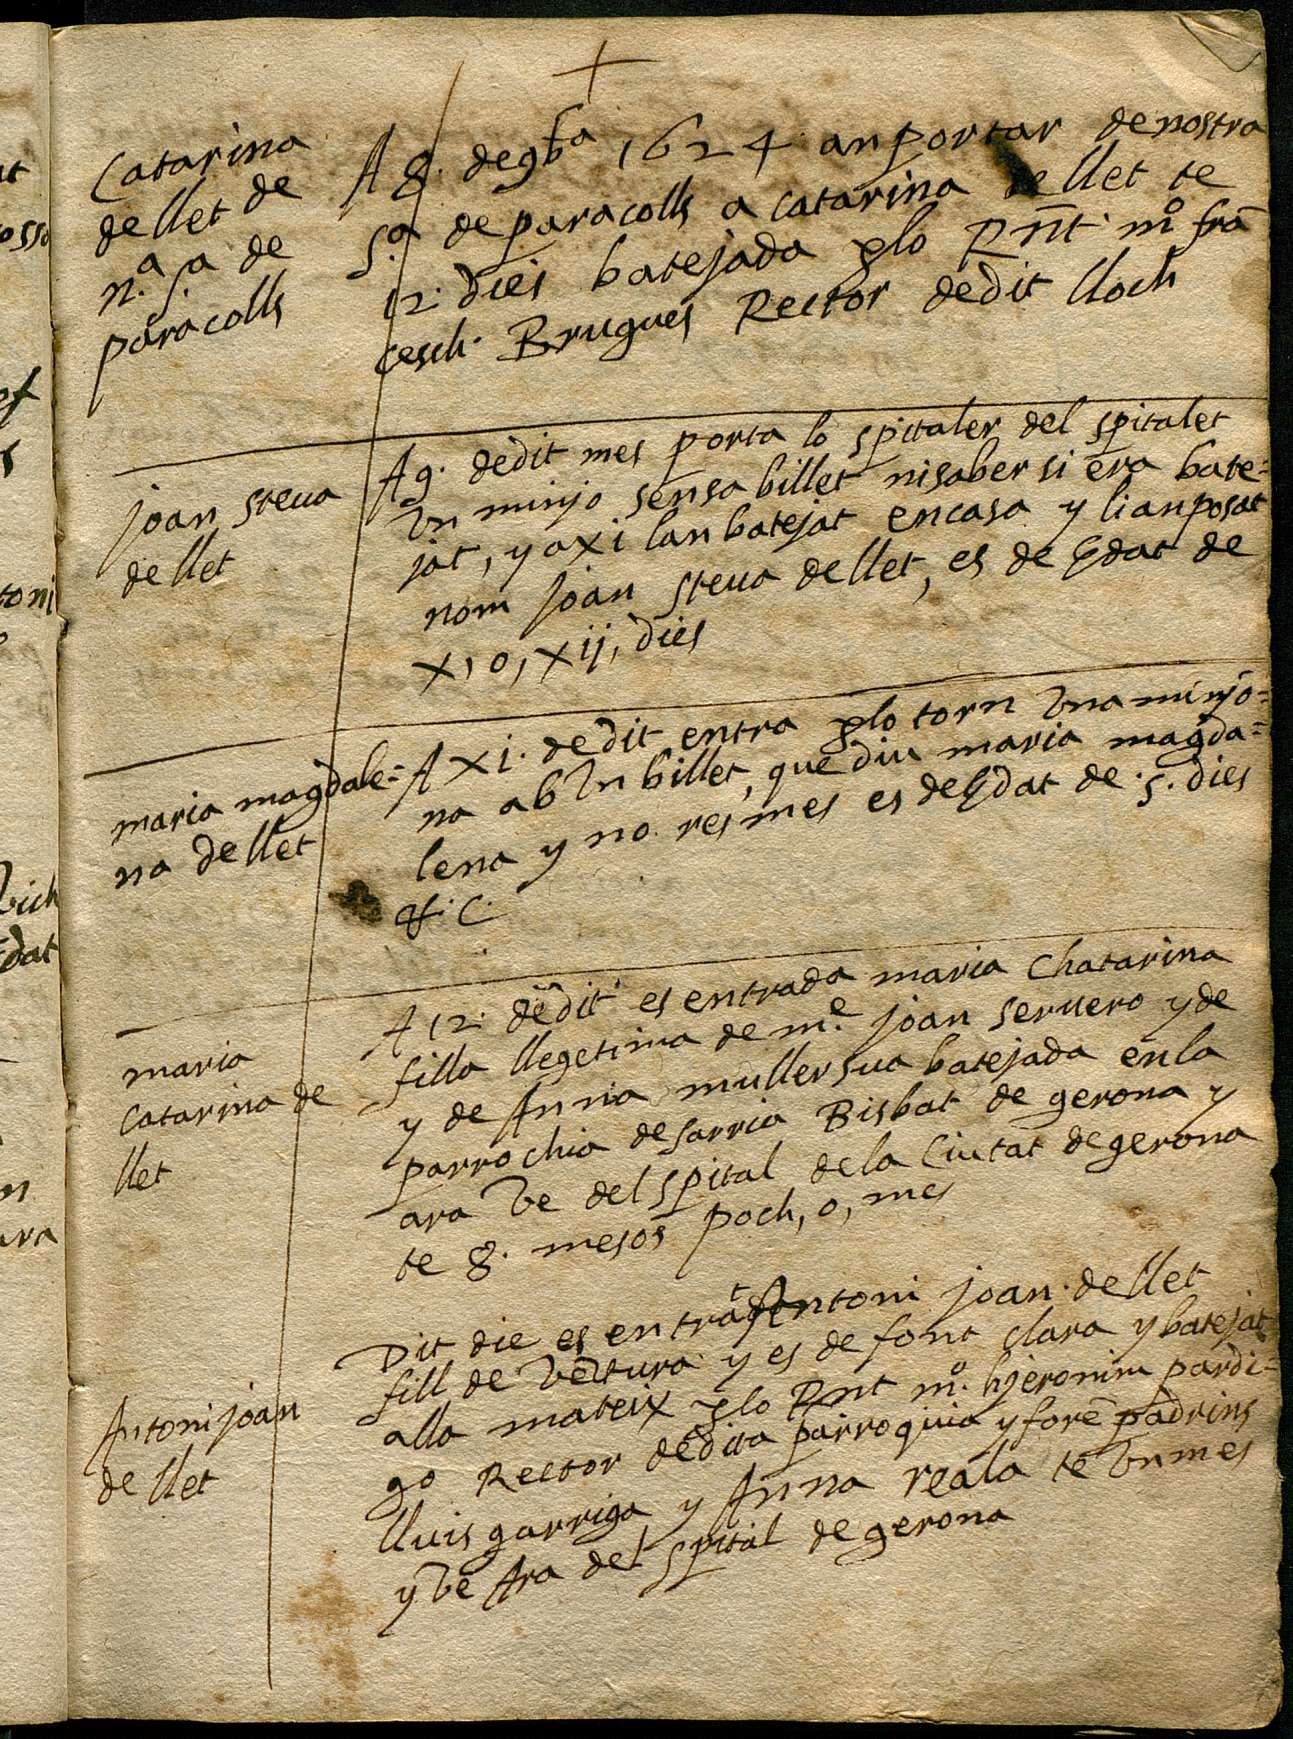 Catarina
de llet de
n.ª s.ª de
paracolls
A 8. de 9bra 1624 an portar de nostra
S.ª de paracolls a catarina de llet te
12. dies batejada plo Rnt. mº fran
cesch. Brugues Rector de dit lloch
joan steua
de llet
A 9. de dit mes porta lo spitaler del spitalet
Vn minjo sensa billet ni saber si era bate=
jat, y axi lan batejat en casa y li an posat
nom joan steua de llet, es de Edat de
X, o, Xij, dies
maria magdale=
na de llet
A Xi. de dit entra plo torn Vna minjo=
na ab Vn billet, que diu maria magda=
lena y no res mes es de Edat de .5. dies
&. C.
maria
Catarina de
llet
A 12. de dit es entrada maria Chatarina
filla llegetima de m.e joan seruero y de
y de Anna muller sua batejada en la
parrochia de sarria Bisbat de gerona y
ara Ve del spital de la Ciutat de gerona
te 8. mesos poch, o, mes
Antoni joan
de llet
Dit die es entrat Antoni joan. de llet
fill de Vetura y es de font clara y batejat
alla mateix plo Rnt mº. hjeronim pardi=
go Rector de dita parroquia y foren padrins
lluis garriga y Anna reala te Vn mes
y Ve Ara del spital de gerona